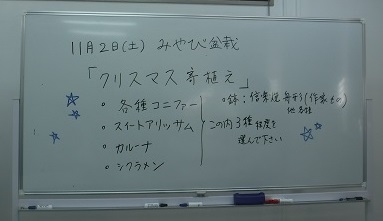 11月2日(土) みやび盆栽
「クリスマス寄植え」
• 各種コニファー
• スイートアリッサム
• カルーナ
• シクラメン
• 鉢；信楽焼舟形(作家もの)
他各種
この内3種程度を
選んで下さい